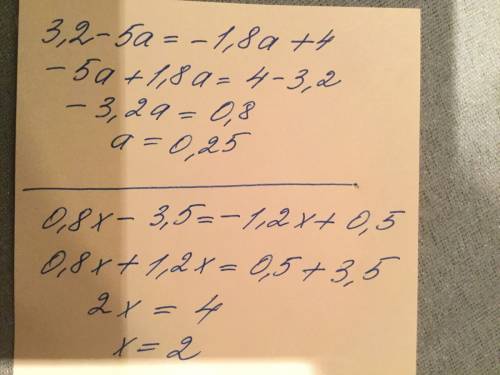 3,2-5a=-1,8a+4
-5a+1,8a=4-3,2
-3,2a=0,8
a=0,25
0,8x-3,5=-1,2x+0,5
0,8x+1,2x=0,5+3,5
2x=4
x=2